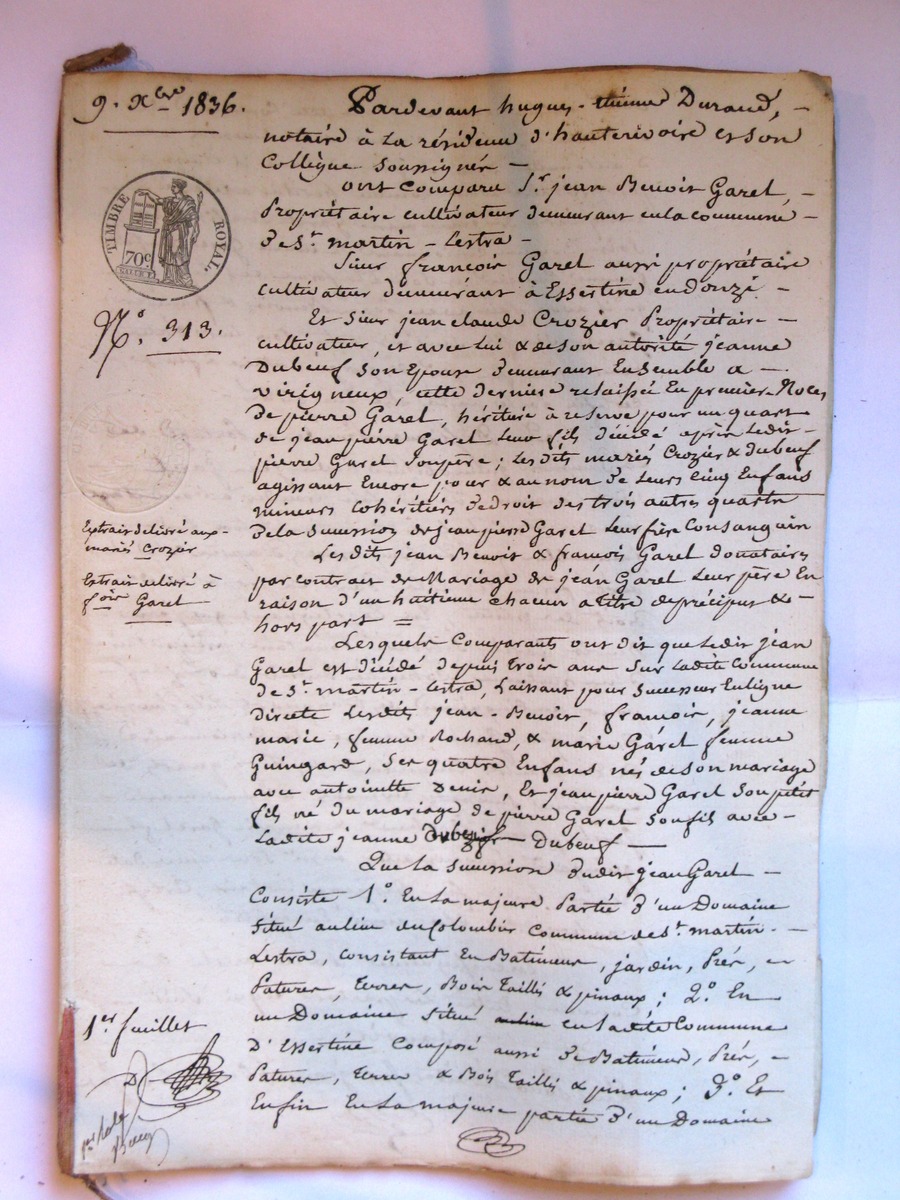 9. Xbre 1836.
Pardevant hugues-étienne Durand, -
notaire à La résidence d'hauterivoire et son
Collègue soussignés -
ont comparu Sr. jean Benoit Garel, -
Propriétaire cultivateur demeurant en la commune -
de St. martin - Lestra -
Sieur françois Garel aussi propriétaire
cultivateur demeurant à Essertine en donzi -
Et sieur jean claude Crozier Propriétaire -
cultivateur, et avec Lui & de son autorité jeanne
Dubeuf son Epouse demeurant Ensemble a -
virigneux, cette dernière relaissée En premier Noces
De pierre Garel, héritière à reserve pour un quart
de jean pierre Garel Leur fils décédé après Ledit -
pierre Garel son père ; Les dits mariés Crozier & Dubeuf
agissant Encore pour & au nom de Leurs cinq Enfans
mineurs Cohéritiers de droit des trois autres quarts
De la succession de jean pierre Garel Leur frère Consanguin
Les dits jean Benoit & francois Garel donataires
par contrat de Mariage de jean Garel Leur père En
raison d'un huitieme chacun a titre de préciput & -
hors part =
Lesquels Comparants ont dit que Ledit jean
Garel est décédé depuis trois ans sur Ladite Commune
de St. martin - Lestra, Laissant pour successeur En ligne
directe Lesdits jean - Benoit, francois, jeanne
marie, femme Rochand, & marie Garel femme
Guingard, ses quatre Enfans nés de son mariage
avec antoinette Denis, Et jean pierre Garel son petit
fils né du mariage de pierre Garel son fils avec -
Ladite jeanne Dubeuf -
Que La succession dudit jean Garel -
Consiste 1o. En La majeure Partie d'un Domaine
situé au lieu du Colombier Commune de St. martin. -
Lestra, consistant En Batimens, jardin, Prés, -
Patures, terres, Bois Taillis & pinaux ; 2o. En
un Domaine situé en Ladite Commune
D'Essertine Composé aussi de Batimens, Prés, -
Patures, terres & Bois Taillis & pinaux ; 3o. Et
Enfin En La majeure partie d'un Domaine
TIMBRE ROYAL.
70c
No. 313.
Extrait délivré aux
mariés Crozier
Extrait délivré à
fois Garel
1er feuillet